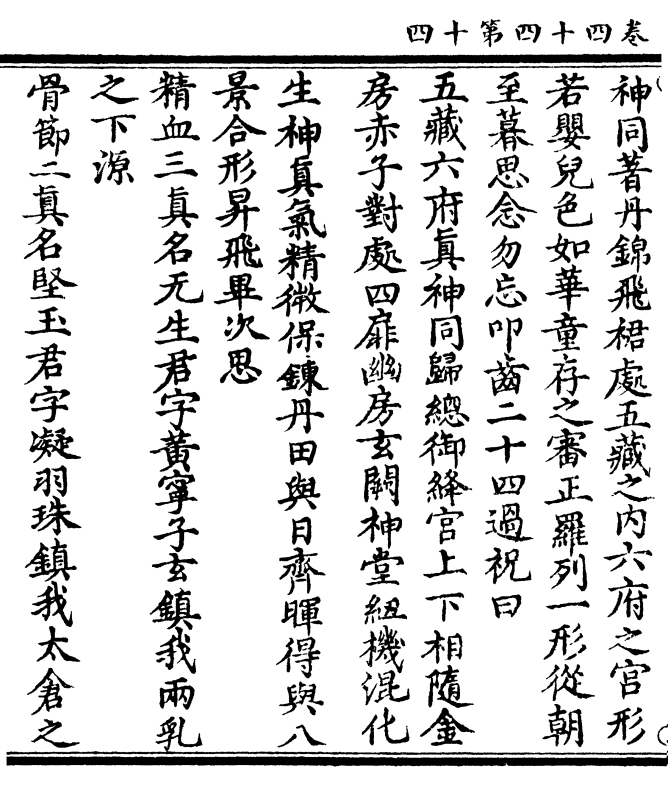 卷四十四第四十四
神同著丹錦飛裙處五藏之内六府之宫形
若嬰兒色如華童存之審正羅列一形從朝
至暮思念勿忘叩齒二十四過祝曰
五藏六府真神同歸總御絳宫上下相隨金
房赤子對處四扉幽房玄闕神堂紐機混化
生神真氣精微保鍊丹田與日齊暉得與八
景合形昇飛畢次思
精血三真名无生君字黃寧子玄鎮我兩乳
之下源
骨節二真名堅玉君字凝羽珠鎮我太倉之